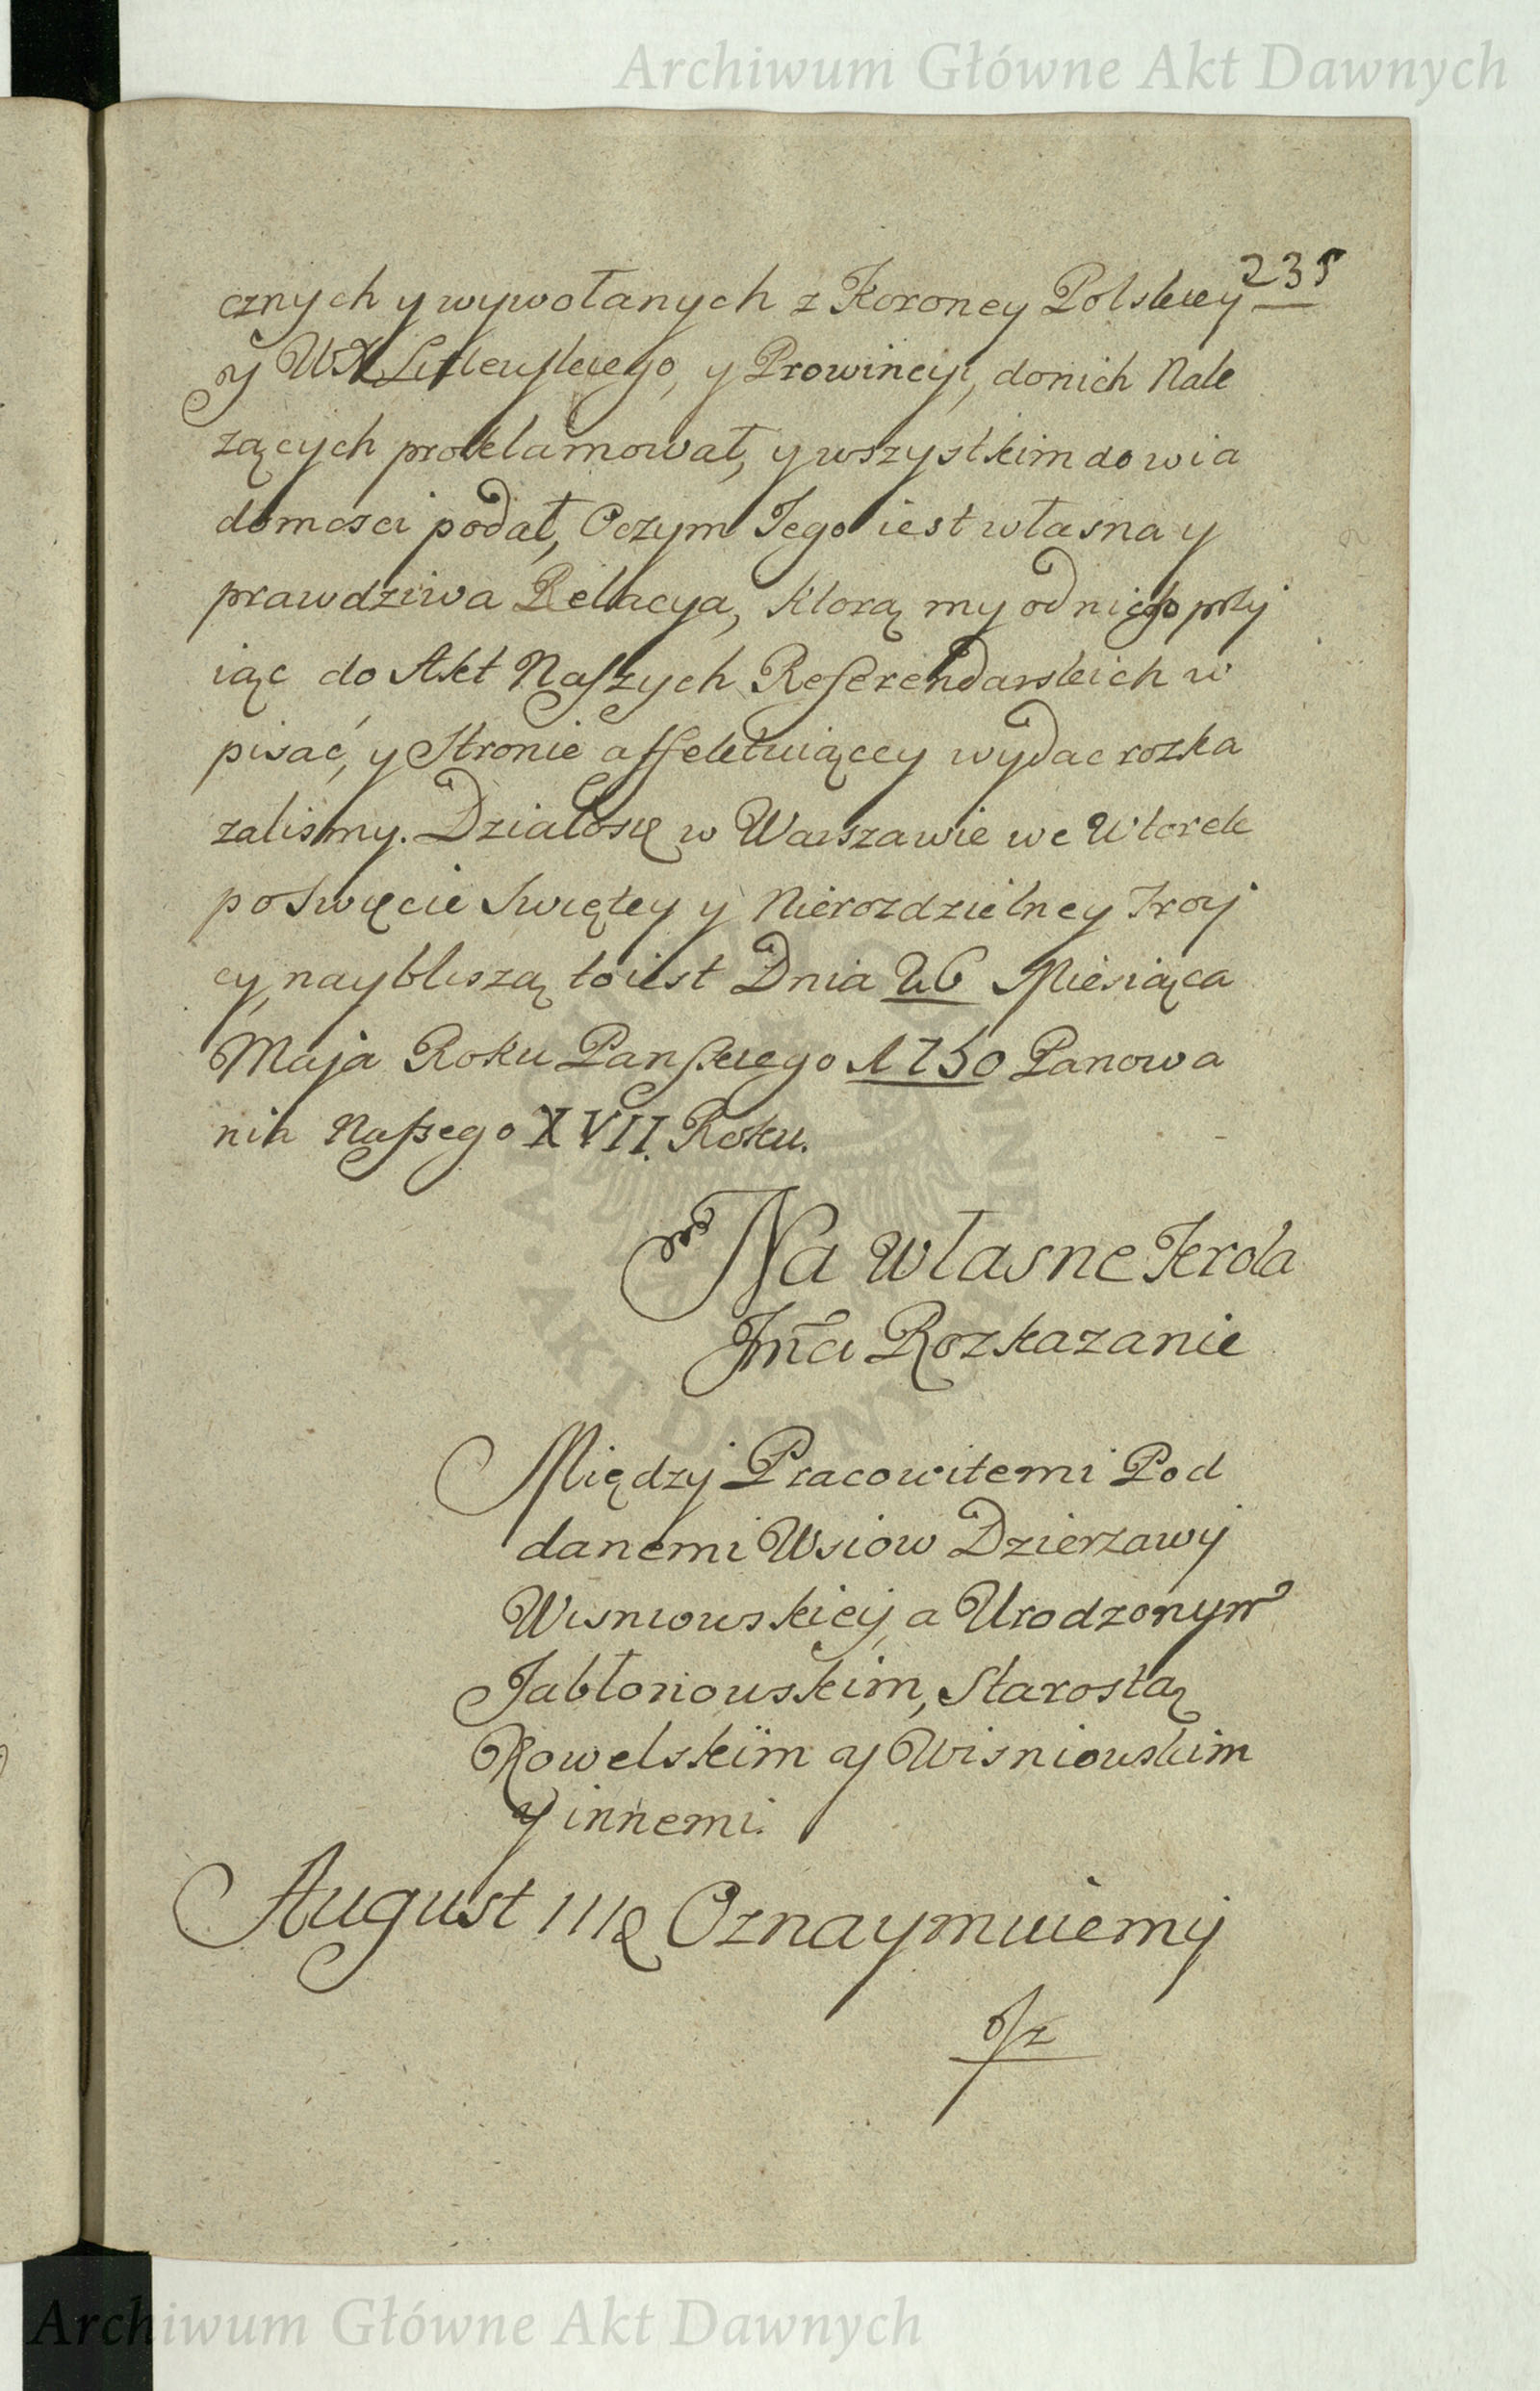 Archiwum Główne Akt Dawnych
235
cznych y wywołanych z Koroney Polskiey
y WX Litewskiego, y Prowincyi, do nich Nale
żących proklamował, y wszystkim do wia
domosci podał, Oczym Jego iest własna y
prawdziwa Relacya, ktorą my od niego przy
iąc do Akt Naszych Referendarskich w
pisać, y Stronie affektuiącey wydac rozka
zalismy. Działosię w Warszawie we Wtorek
po Swięcie Swiętey y Nierozdzielney Troy
cy, naybliszą to iest Dnia 26 Miesiąca
Maja Roku Panskiego 1750 Panowa
nia Naszego XVII. Roku.
Na własne Krola
Jmci Rozkazanie
Między Pracowitemi Pod
danemi Wsiow Dzierzawy
Wisniowskiey a Urodzonym
Jabłonowskim, Starostą
Kowelskim y Wisniowskim
y innemi.
August III Oznaymuiemy
Archiwum Główne Akt Dawnych